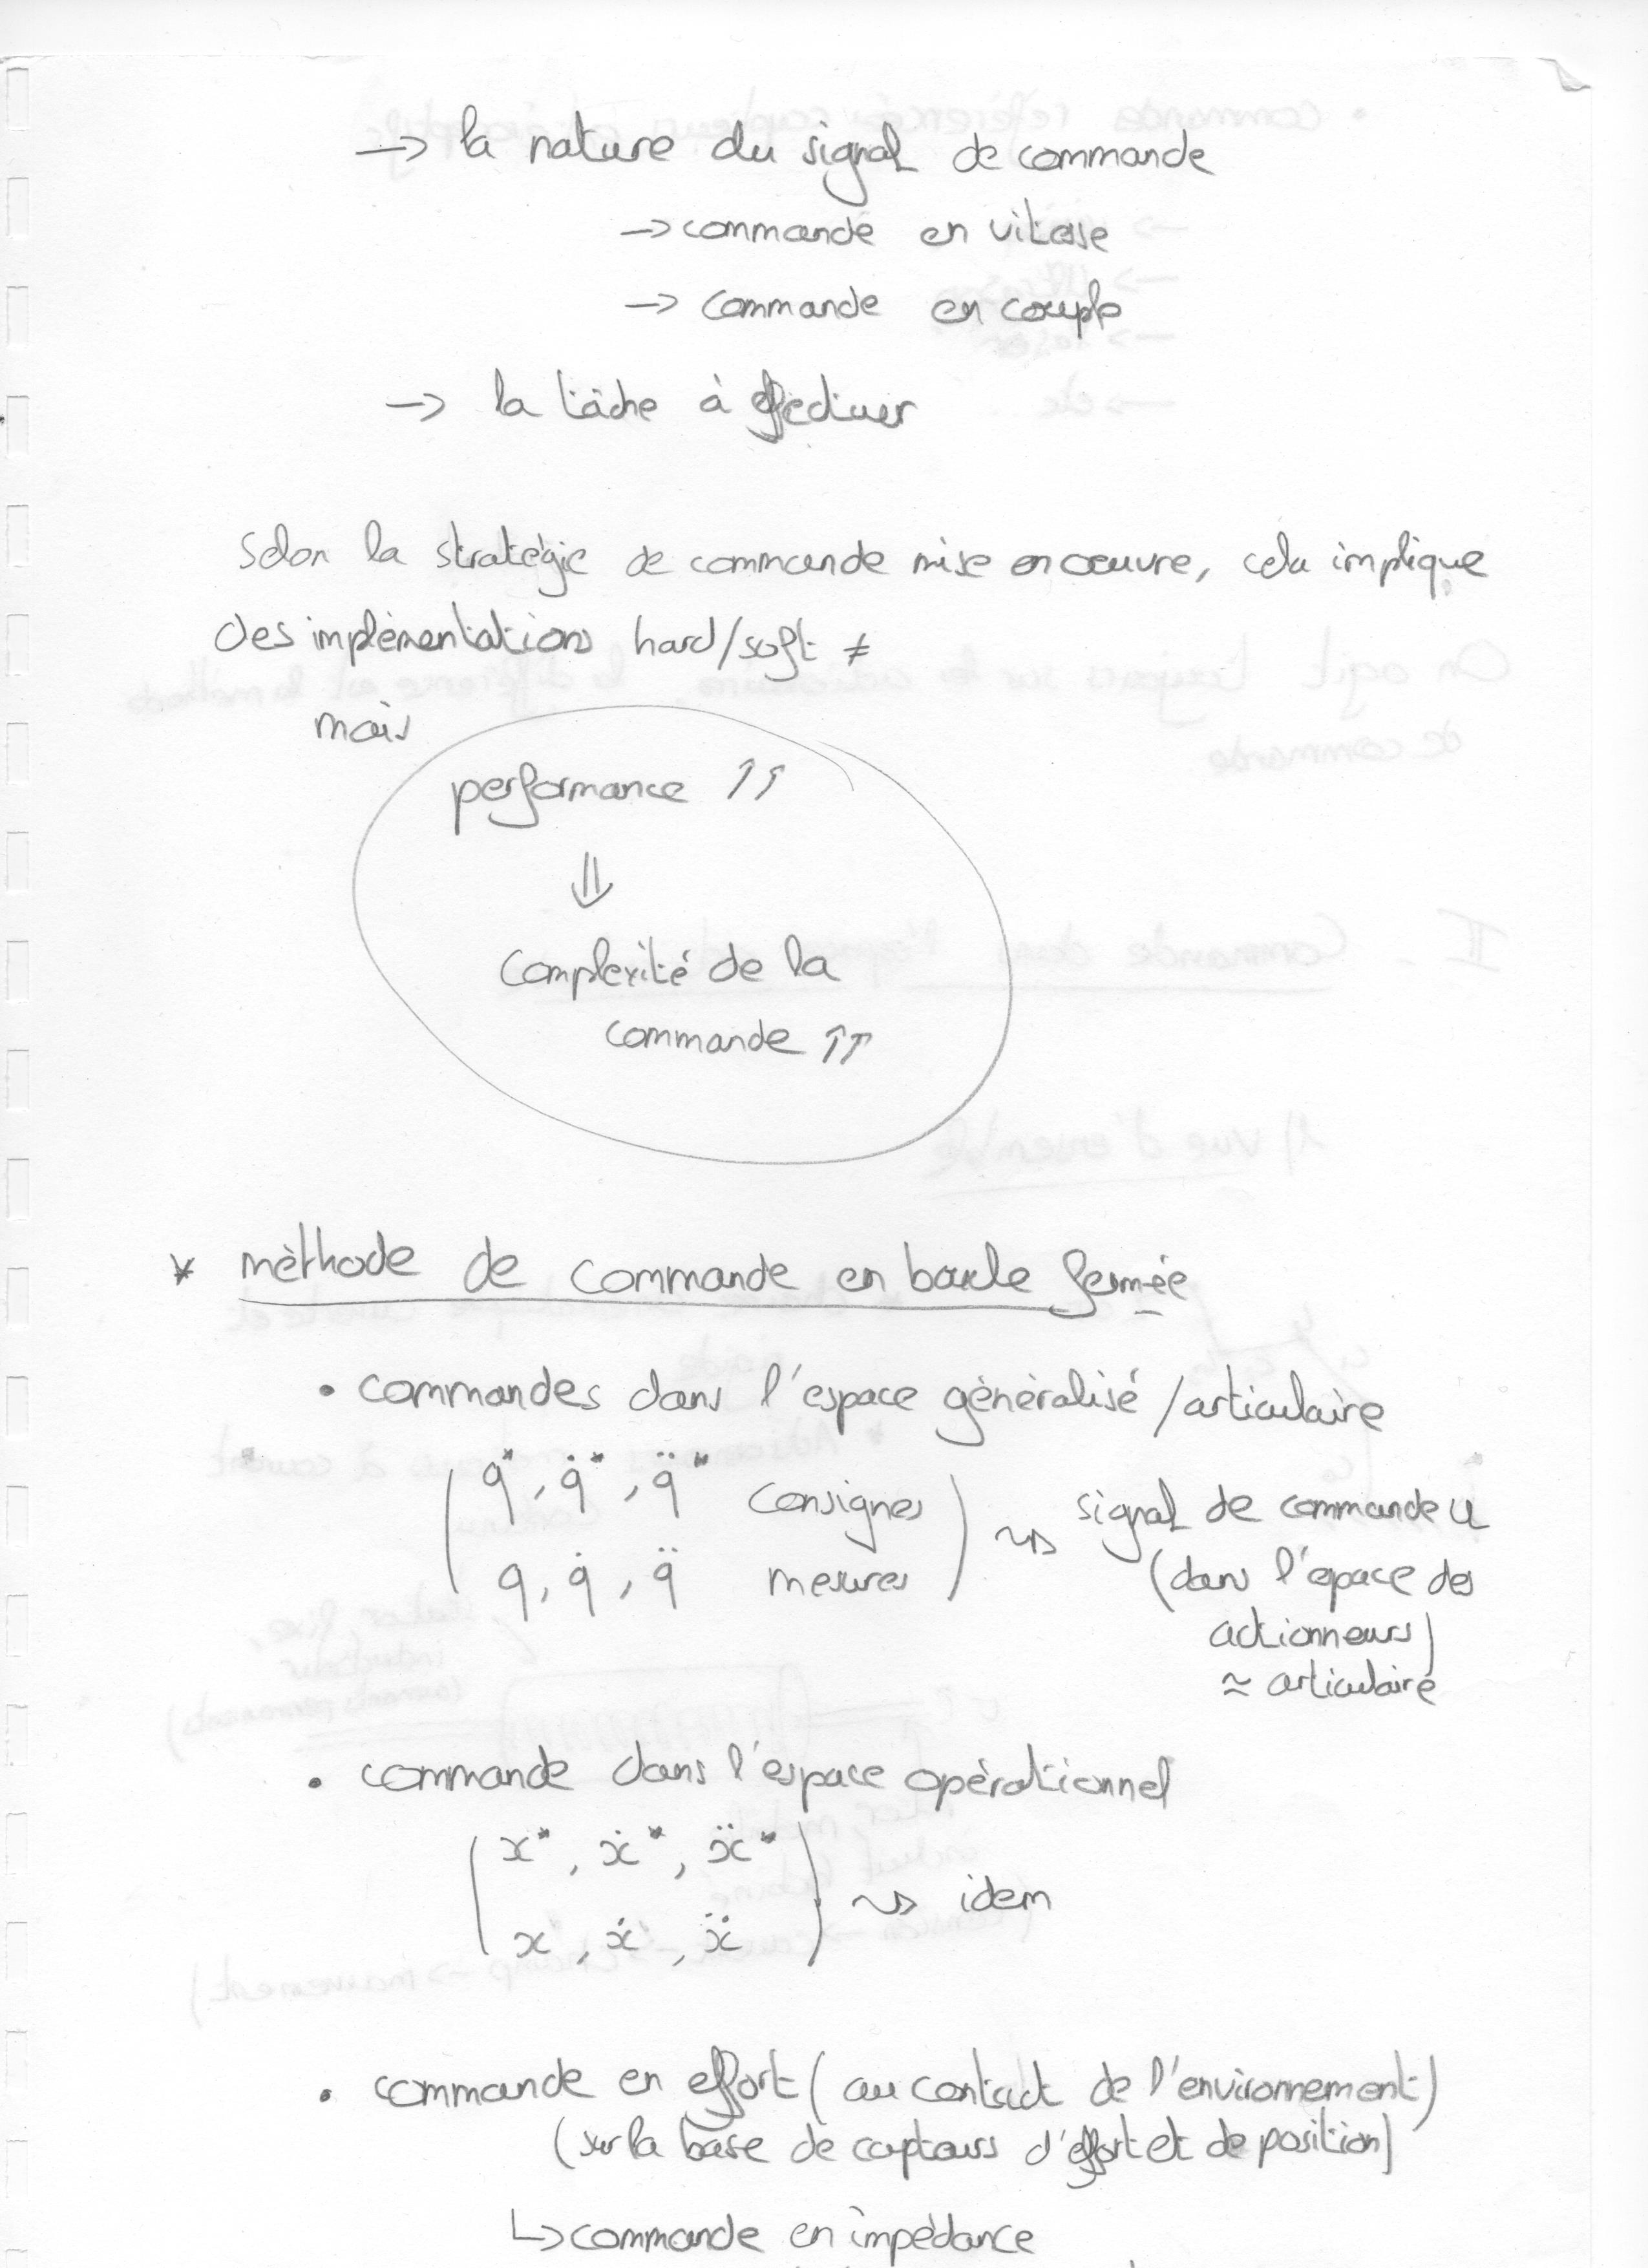 → la nature du signal de commande
→ commande en vitesse
→ commande en couple
→ la tâche à effectuer
Selon la stratégie de commande mise en œuvre, cela implique
des implémentations hard/soft ≠
mais
performance ↑↑
⇓
Complexité de la
commande ↑↑
* méthode de commande en boucle fermée
• commandes dans l'espace généralisé / articulaire
( q*, q̇*, q̈* consignes
q, q̇, q̈ mesures ) ⇝ signal de commande u
(dans l'espace des
actionneurs)
≃ articulaire
• commande dans l'espace opérationnel
( x*, ẋ*, ẍ*
x, ẋ, ẍ ) ⇝ idem
• commande en effort (au contact de l'environnement)
(sur la base de capteurs d'effort et de position)
↳ commande en impédance